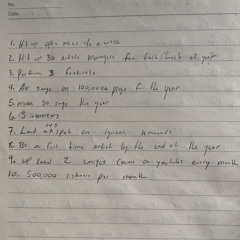 No.
Date.
1. Hit up open mics 4x a week
2. Hit up 30 artists managers for first/half of year
3. Perform 3 festivals
4. All songs on 100,000k plays for the year
5. make 50 songs this year
6. 5
7. Land a spot on lyrical lemonade
8. Be a full time artist by the end of the year.
9. upload 2 covers on youtube every month
10. 500,000 listeners per month